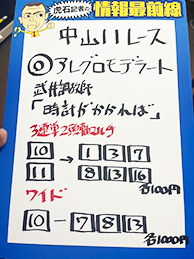 虎石記者の情報最前線
中山11レース
◎アレグロモデラート
武井調教師
「時計がかかれば」
3連単2頭軸マルチ
10 → 1 3 7
11 8 13 16
各100円
ワイド
10-7 8 13
各1000円